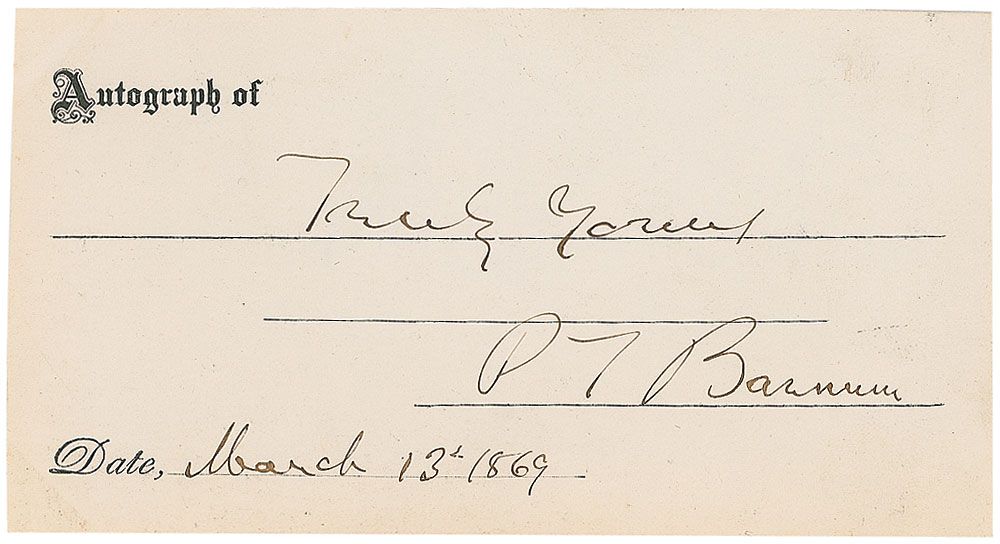 Autograph of
Truly Yours
P T Barnum
Date, March 13th 1869